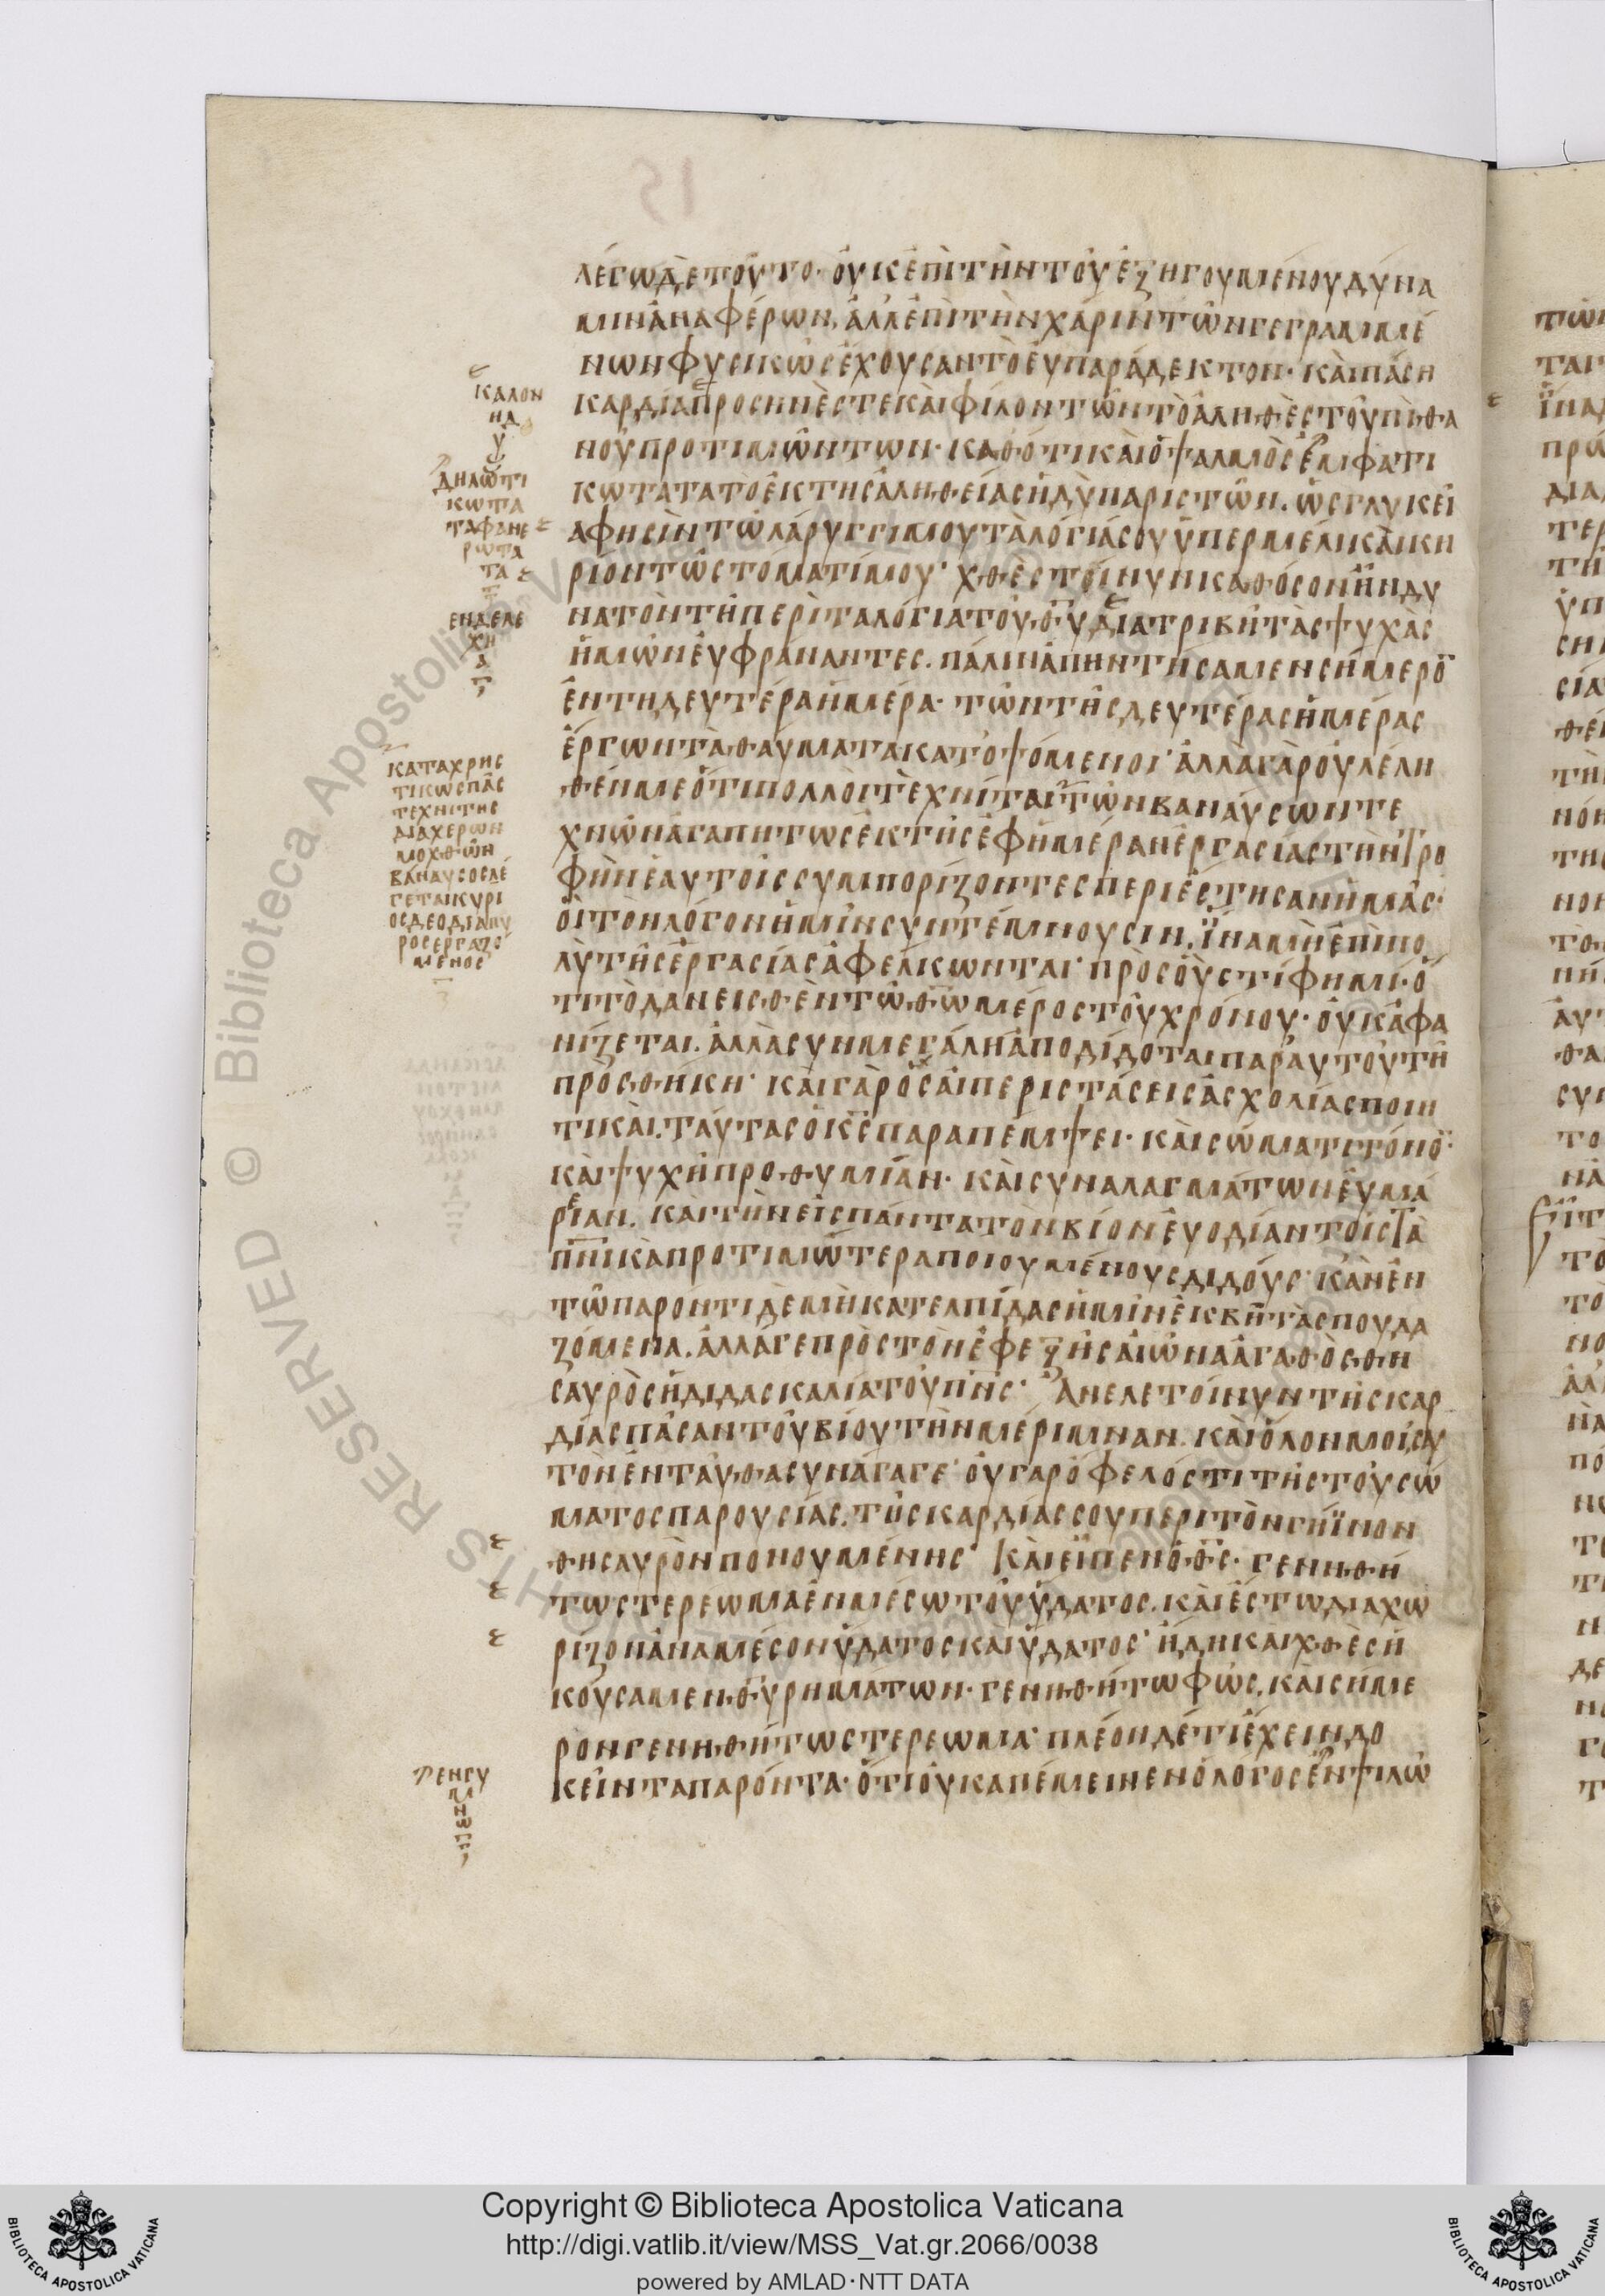 ΛΕΓΩΔΕΤΟΥΤΟ· ΟΥΚΕΠΙΤΗΝΤΟΥΕΞΗΓΟΥΜΕΝΟΥΔΥΝΑ
ΜΙΝΑΝΑΦΕΡΩΝ, ΑΛΛΕΠΙΤΗΝΧΑΡΙΝΤΩΝΓΕΓΡΑΜΜΕ
ΝΩΝΦΥΣΙΚΩΣΕΧΟΥΣΑΝΤΟΕΥΠΑΡΑΔΕΚΤΟΝ· ΚΑΙΠΑΣΗ
ΚΑΡΔΙΑΠΡΟΣΗΝΕΣΤΕΚΑΙΦΙΛΟΝΤΩΝΤΟΑΛΗΘΕΣΤΟΥΠΙΘΑ
ΝΟΥΠΡΟΤΙΜΩΝΤΩΝ· ΚΑΘΟΤΙΚΑΙΟΨΑΛΜΟΣΕΜΦΑΤΙ
ΚΩΤΑΤΑΤΟΕΚΤΗΣΑΛΗΘΕΙΑΣΗΔΥΠΑΡΙΣΤΩΝ. ΩΣΓΛΥΚΕΙ
ΑΦΗΣΙΝΤΩΛΑΡΥΓΓΙΜΟΥΤΑΛΟΓΙΑΣΟΥΥΠΕΡΜΕΛΙΚΑΙΚΗ
ΡΙΟΝΤΩΣΤΟΜΑΤΙΜΟΥ· ΧΘΕΣΤΟΙΝΥΝΚΑΘΟΣΟΝΗΝΔΥ
ΝΑΤΟΝΤΗΠΕΡΙΤΑΛΟΓΙΑΤΟΥΘΥΔΙΑΤΡΙΒΗΤΑΣΨΥΧΑΣ
ΗΜΩΝΕΥΦΡΑΝΑΝΤΕΣ. ΠΑΛΙΝΑΠΗΝΤΗΣΑΜΕΝΣΗΜΕΡΟ
ΕΝΤΗΔΕΥΤΕΡΑΗΜΕΡΑ· ΤΩΝΤΗΣΔΕΥΤΕΡΑΣΗΜΕΡΑΣ
ΕΡΓΩΝΤΑΘΑΥΜΑΤΑΚΑΤΟΨΟΜΕΝΟΙ· ΑΛΛΑΓΑΡΟΥΛΕΛΗ
ΘΕΝΜΕΟΤΙΠΟΛΛΟΙΤΕΧΝΙΤΑΙΤΩΝΒΑΝΑΥΣΩΝΤΕ
ΧΝΩΝΑΓΑΠΗΤΩΣΕΚΤΗΣΕΦΗΜΕΡΑΝΕΡΓΑΣΙΑΣΤΗΝΤΡΟ
ΦΗΝΕΑΥΤΟΙΣΣΥΜΠΟΡΙΖΟΝΤΕΣΠΕΡΙΕΣΤΗΣΑΝΗΜΑΣ·
ΟΙΤΟΝΛΟΓΟΝΗΜΙΝΣΥΝΤΕΜΝΟΥΣΙΝ. ΪΝΑΜΗΕΠΙΠΟ
ΛΥΤΗΣΕΡΓΑΣΙΑΣΑΦΕΛΚΩΝΤΑΙ· ΠΡΟΣΟΥΣΤΙΦΗΜΙ· Ο
ΤΙΤΟΔΑΝΕΙΣΘΕΝΤΩΘΩΜΕΡΟΣΤΟΥΧΡΟΝΟΥ· ΟΥΚΑΦΑ
ΝΙΖΕΤΑΙ. ΑΛΛΑΣΥΝΜΕΓΑΛΗΑΠΟΔΙΔΟΤΑΙΠΑΡΑΥΤΟΥΤΗ
ΠΡΟΣΘΗΚΗ· ΚΑΙΓΑΡΟΣΑΙΠΕΡΙΣΤΑΣΕΙΣΑΣΧΟΛΙΑΣΠΟΙΗ
ΤΙΚΑΙ. ΤΑΥΤΑΣΟΚΣΠΑΡΑΠΕΜΨΕΙ· ΚΑΙΣΩΜΑΤΙΤΟΝΟ·
ΚΑΙΨΥΧΗΠΡΟΘΥΜΙΑΝ· ΚΑΙΣΥΝΑΛΑΓΜΑΤΩΝΕΥΜΑ
ΡΕΙΑΝ. ΚΑΙΤΗΝΕΙΣΠΑΝΤΑΤΟΝΒΙΟΝΕΥΟΔΙΑΝΤΟΙΣΤΑ
ΠΝΙΚΑΠΡΟΤΙΜΩΤΕΡΑΠΟΙΟΥΜΕΝΟΥΣΔΙΔΟΥΣ· ΚΑΝΕΝ
ΤΩΠΑΡΟΝΤΙΔΕΜΗΚΑΤΕΛΠΙΔΑΣΗΜΙΝΕΚΒΗΤΑΣΠΟΥΔΑ
ΖΟΜΕΝΑ. ΑΛΛΑΓΕΠΡΟΣΤΟΝΕΦΕΞΗΣΑΙΩΝΑΑΓΑΘΟΣΘΗ
ΣΑΥΡΟΣΗΔΙΔΑΣΚΑΛΙΑΤΟΥΠΝΣ· ΑΝΕΛΕΤΟΙΝΥΝΤΗΣΚΑΡ
ΔΙΑΣΠΑΣΑΝΤΟΥΒΙΟΥΤΗΝΜΕΡΙΜΝΑΝ. ΚΑΙΟΛΟΝΜΟΙΣΑΥ
ΤΟΝΕΝΤΑΥΘΑΣΥΝΑΓΑΓΕ· ΟΥΓΑΡΟΦΕΛΟΣΤΙΤΗΣΤΟΥΣΩ
ΜΑΤΟΣΠΑΡΟΥΣΙΑΣ. ΤΗΣΚΑΡΔΙΑΣΣΟΥΠΕΡΙΤΟΝΓΗΪΝΟΝ
ΘΗΣΑΥΡΟΝΠΟΝΟΥΜΕΝΗΣ· ΚΑΙΕΙΠΕΝΟΘΣ· ΓΕΝΗΘΗ
ΤΩΣΤΕΡΕΩΜΑΕΝΜΕΣΩΤΟΥΥΔΑΤΟΣ. ΚΑΙΕΣΤΩΔΙΑΧΩ
ΡΙΖΟΝΑΝΑΜΕΣΟΝΥΔΑΤΟΣΚΑΙΥΔΑΤΟΣ· ΗΔΗΚΑΙΧΘΕΣΗ
ΚΟΥΣΑΜΕΝΘΥΡΗΜΑΤΩΝ· ΓΕΝΗΘΗΤΩΦΩΣ. ΚΑΙΣΗΜΕ
ΡΟΝΓΕΝΗΘΗΤΩΣΤΕΡΕΩΜΑ· ΠΛΕΟΝΔΕΤΙΕΧΕΙΝΔΟ
ΚΕΙΝΤΑΠΑΡΟΝΤΑ· ΟΤΙΟΥΚΑΠΕΜΕΙΝΕΝΟΛΟΓΟΣΕΝΨΙΛΩ
ΚΑΛΟΝ
ΗΔ
Υ
ΔΗΛΩΤΙ
ΚΩΤΑ
ΤΑΦΑΝΕ
ΡΩΤΑ
ΤΑ
ΕΝΔΕΛΕ
ΧΗ
Α
ΚΑΤΑΧΡΗΣ
ΤΙΚΩΣΠΑΣ
ΤΕΧΝΙΤΗΣ
ΔΙΑΧΕΡΩΝ
ΜΟΧΘΩΝ
ΒΑΝΑΥΣΟΣΛΕ
ΓΕΤΑΙΚΥΡΙ
ΟΣΔΕΟΔΙΑΠΥ
ΡΟΣΕΡΓΑΖΟ
ΜΕΝΟΣ
ΕΝΓΥ
Μ
Ν
15
Copyright © Biblioteca Apostolica Vaticana
http://digi.vatlib.it/view/MSS_Vat.gr.2066/0038
powered by AMLAD·NTT DATA
BIBLIOTECA APOSTOLICA VATICANA
BIBLIOTECA APOSTOLICA VATICANA